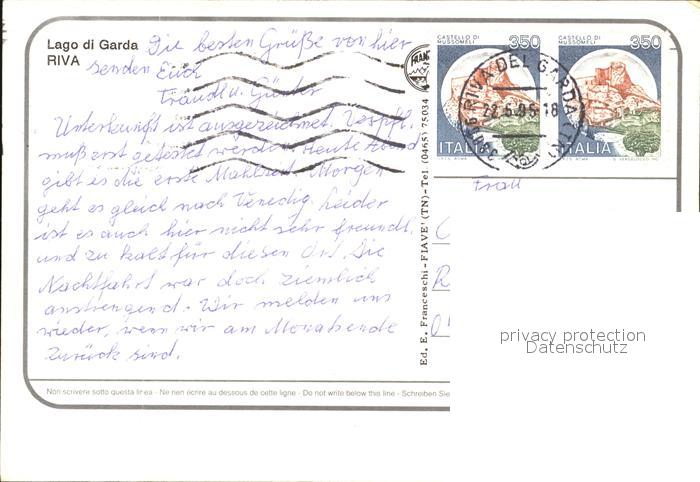 Lago di Garda
RIVA
Die besten Grüße von hier
senden Euch
Traudl u. Günter
Unterkunft ist ausgezeichnet. Verpfl.
muß erst getestet werden. Heute Abend
gibt es die erste Mahlzeit. Morgen
geht es gleich nach Venedig. Leider
ist es auch hier nicht sehr freundl.
und zu kalt für diesen Ort. Die
Nachtfahrt war doch ziemlich
anstrengend. Wir melden uns
wieder, wenn wir am Monatsende
zurück sind.
Non scrivere sotto questa linea - Ne rien écrire au dessous de cette ligne - Do not write below this line - Schreiben Sie
Ed. E. Franceschi - FIAVE' (TN) - Tel. (0465) 75034
FRANC
CASTELLO DI
MUSSOMELI
350
ITALIA
CASTELLO DI
MUSSOMELI
350
ITALIA
RIVA DEL GARDA (TN)
22.5.95.18
Frau
privacy protection
Datenschutz